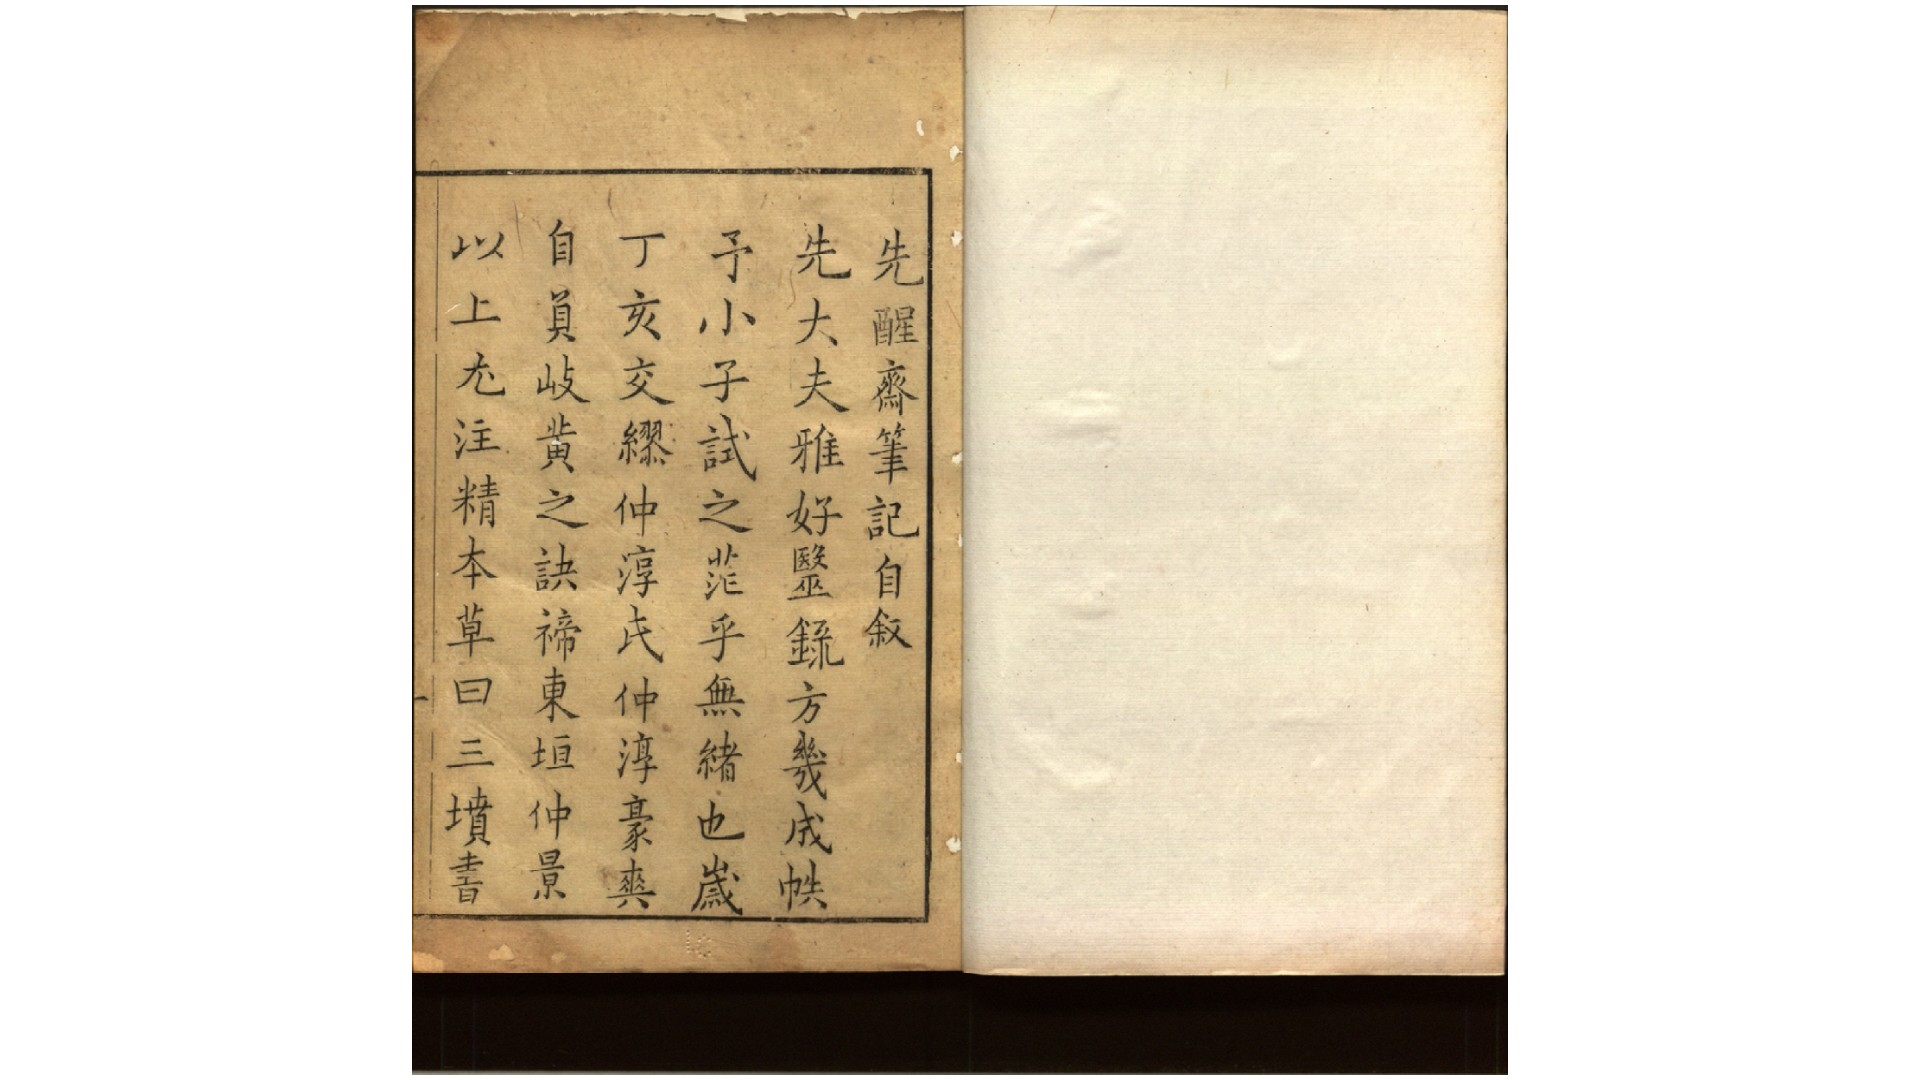 先醒齋筆記自叙
先大夫雅好毉録方幾成帙
予小子試之茫乎無緒也嵗
丁亥交繆仲淳氏仲淳豪爽
自負岐黄之訣禘東垣仲景
以上尤注精本草曰三墳書